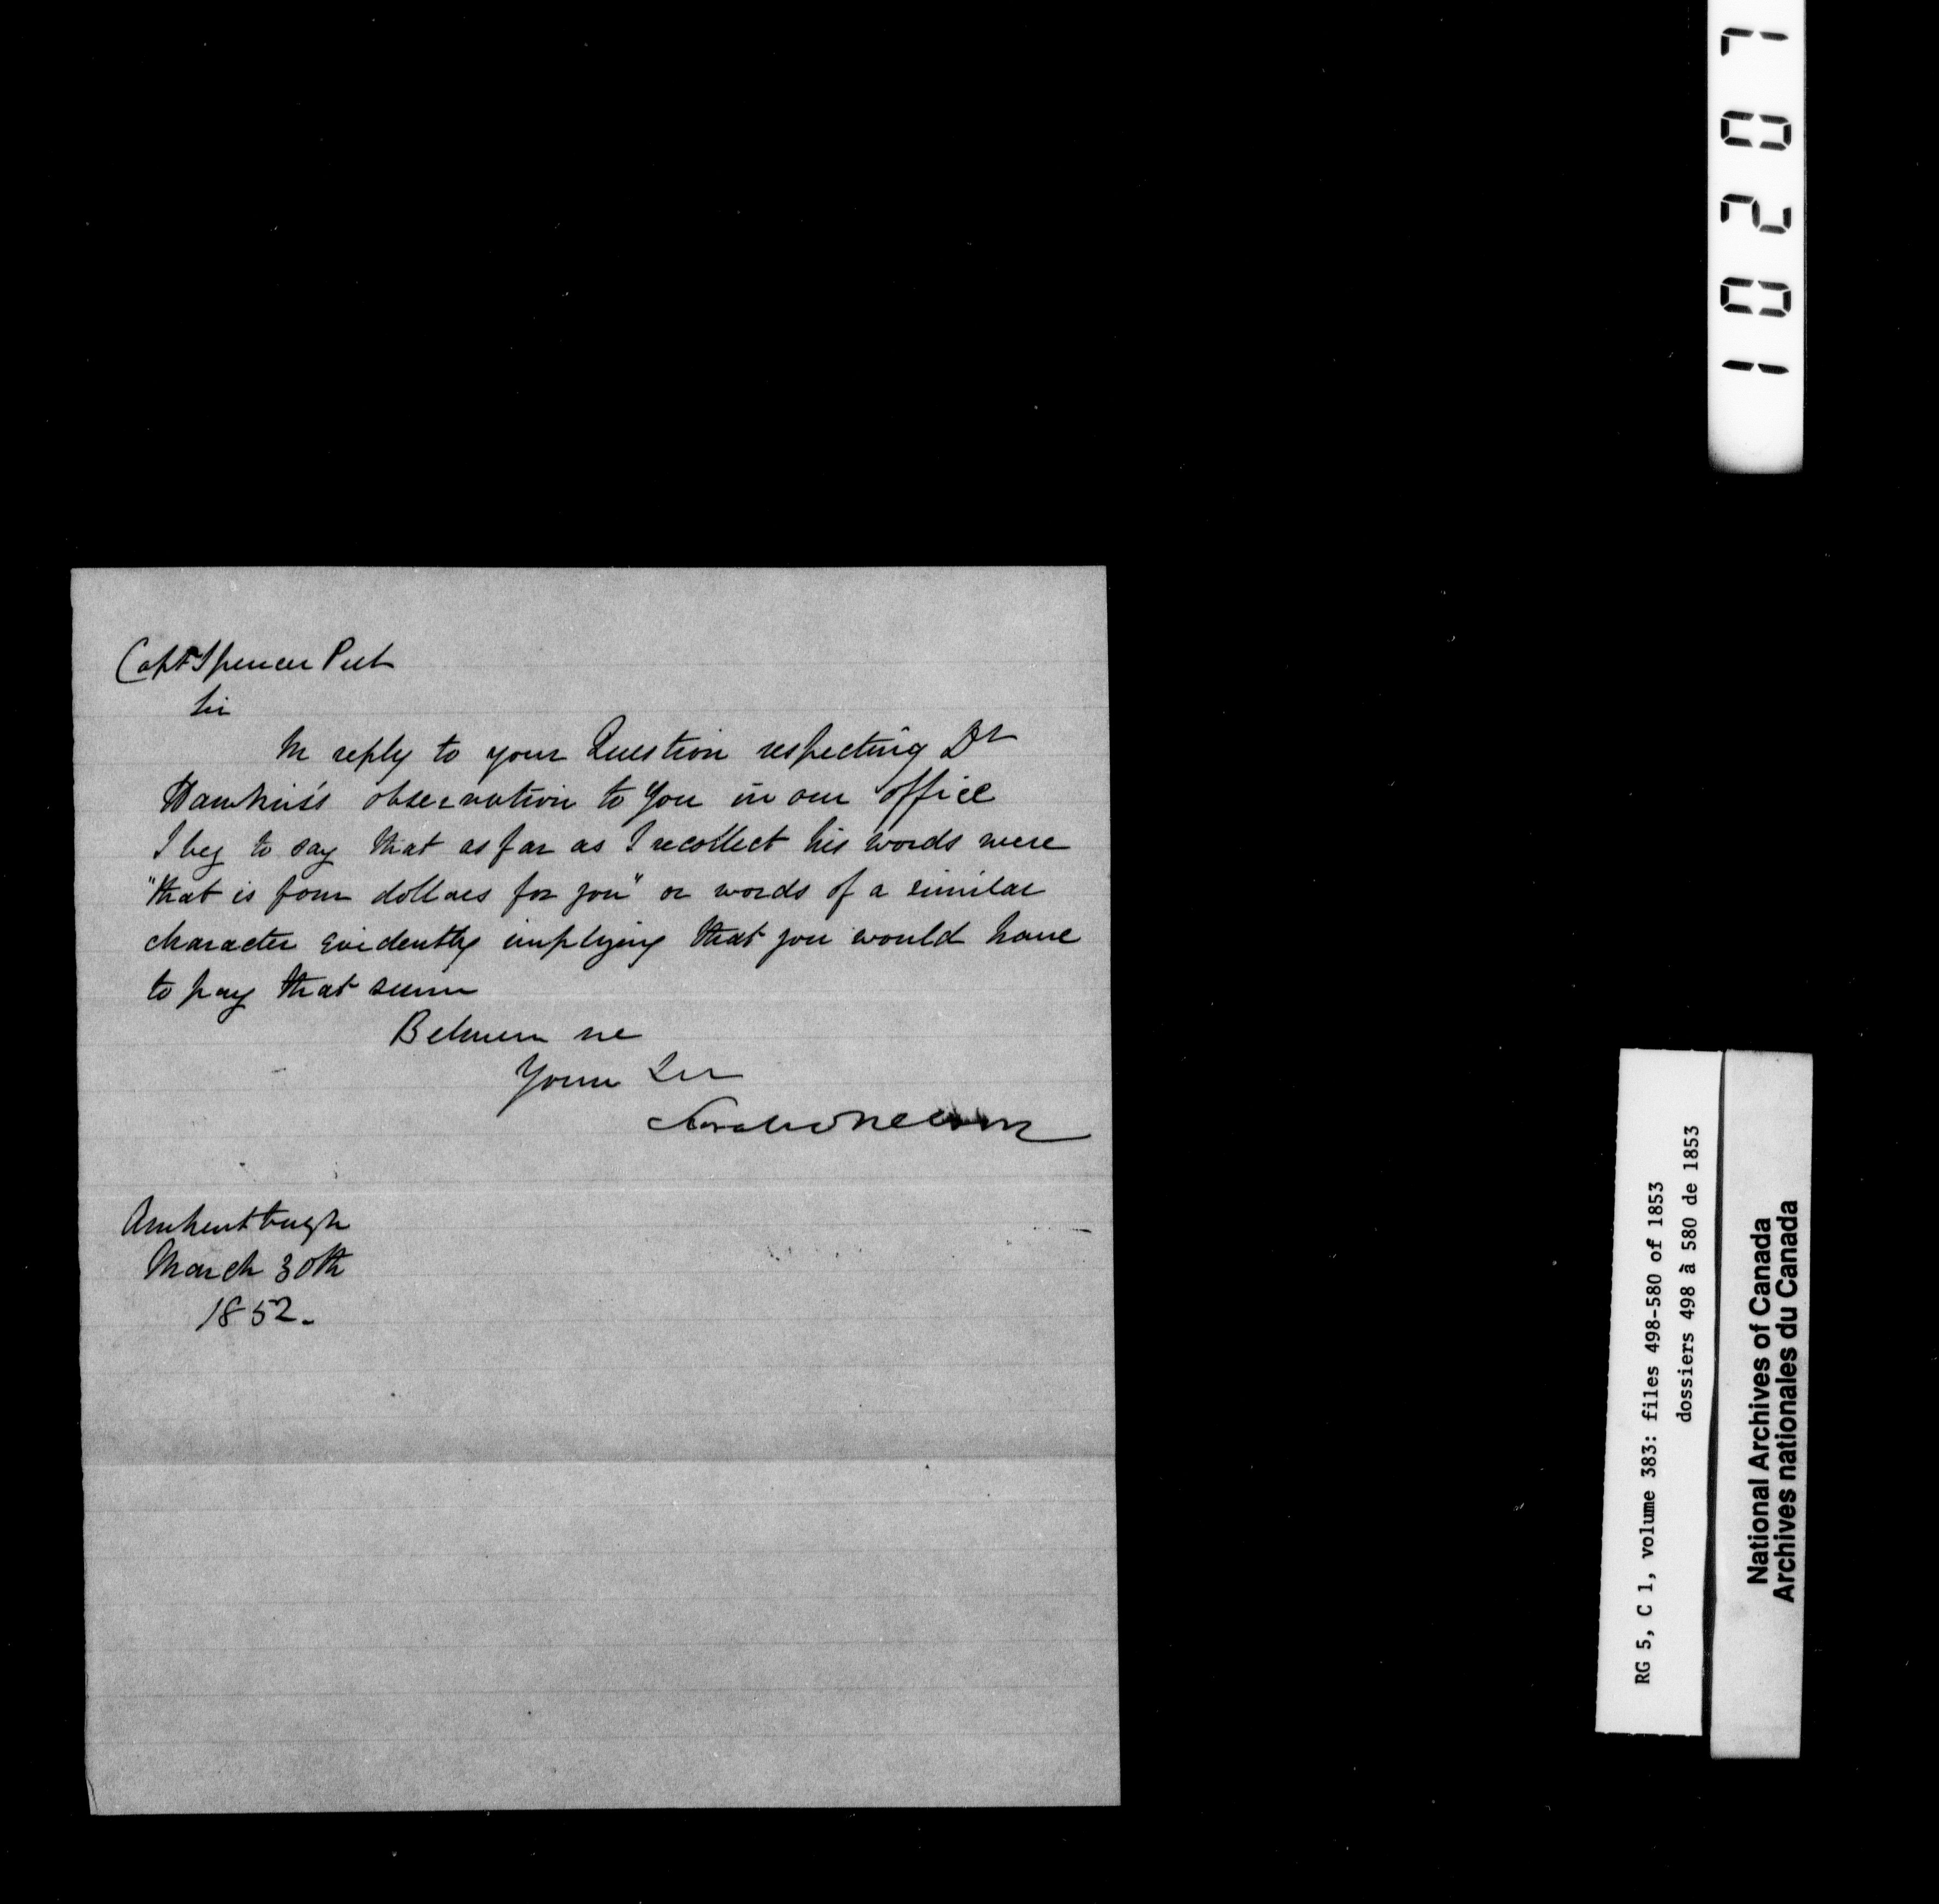 Capt Spencer Peet
Sir
In reply to your Question respecting Dr
Hawkins's observation to You in our office
I beg to say that as far as I recollect his words were
"that is four dollars for you" or words of a similar
character evidently implying that you would have
to pay that sum
Believe me
Yours &c
Amherstburgh
March 30th
1852.
10207
RG 5, C 1, volume 383: files 498-580 of 1853
dossiers 498 à 580 de 1853
National Archives of Canada
Archives nationales du Canada